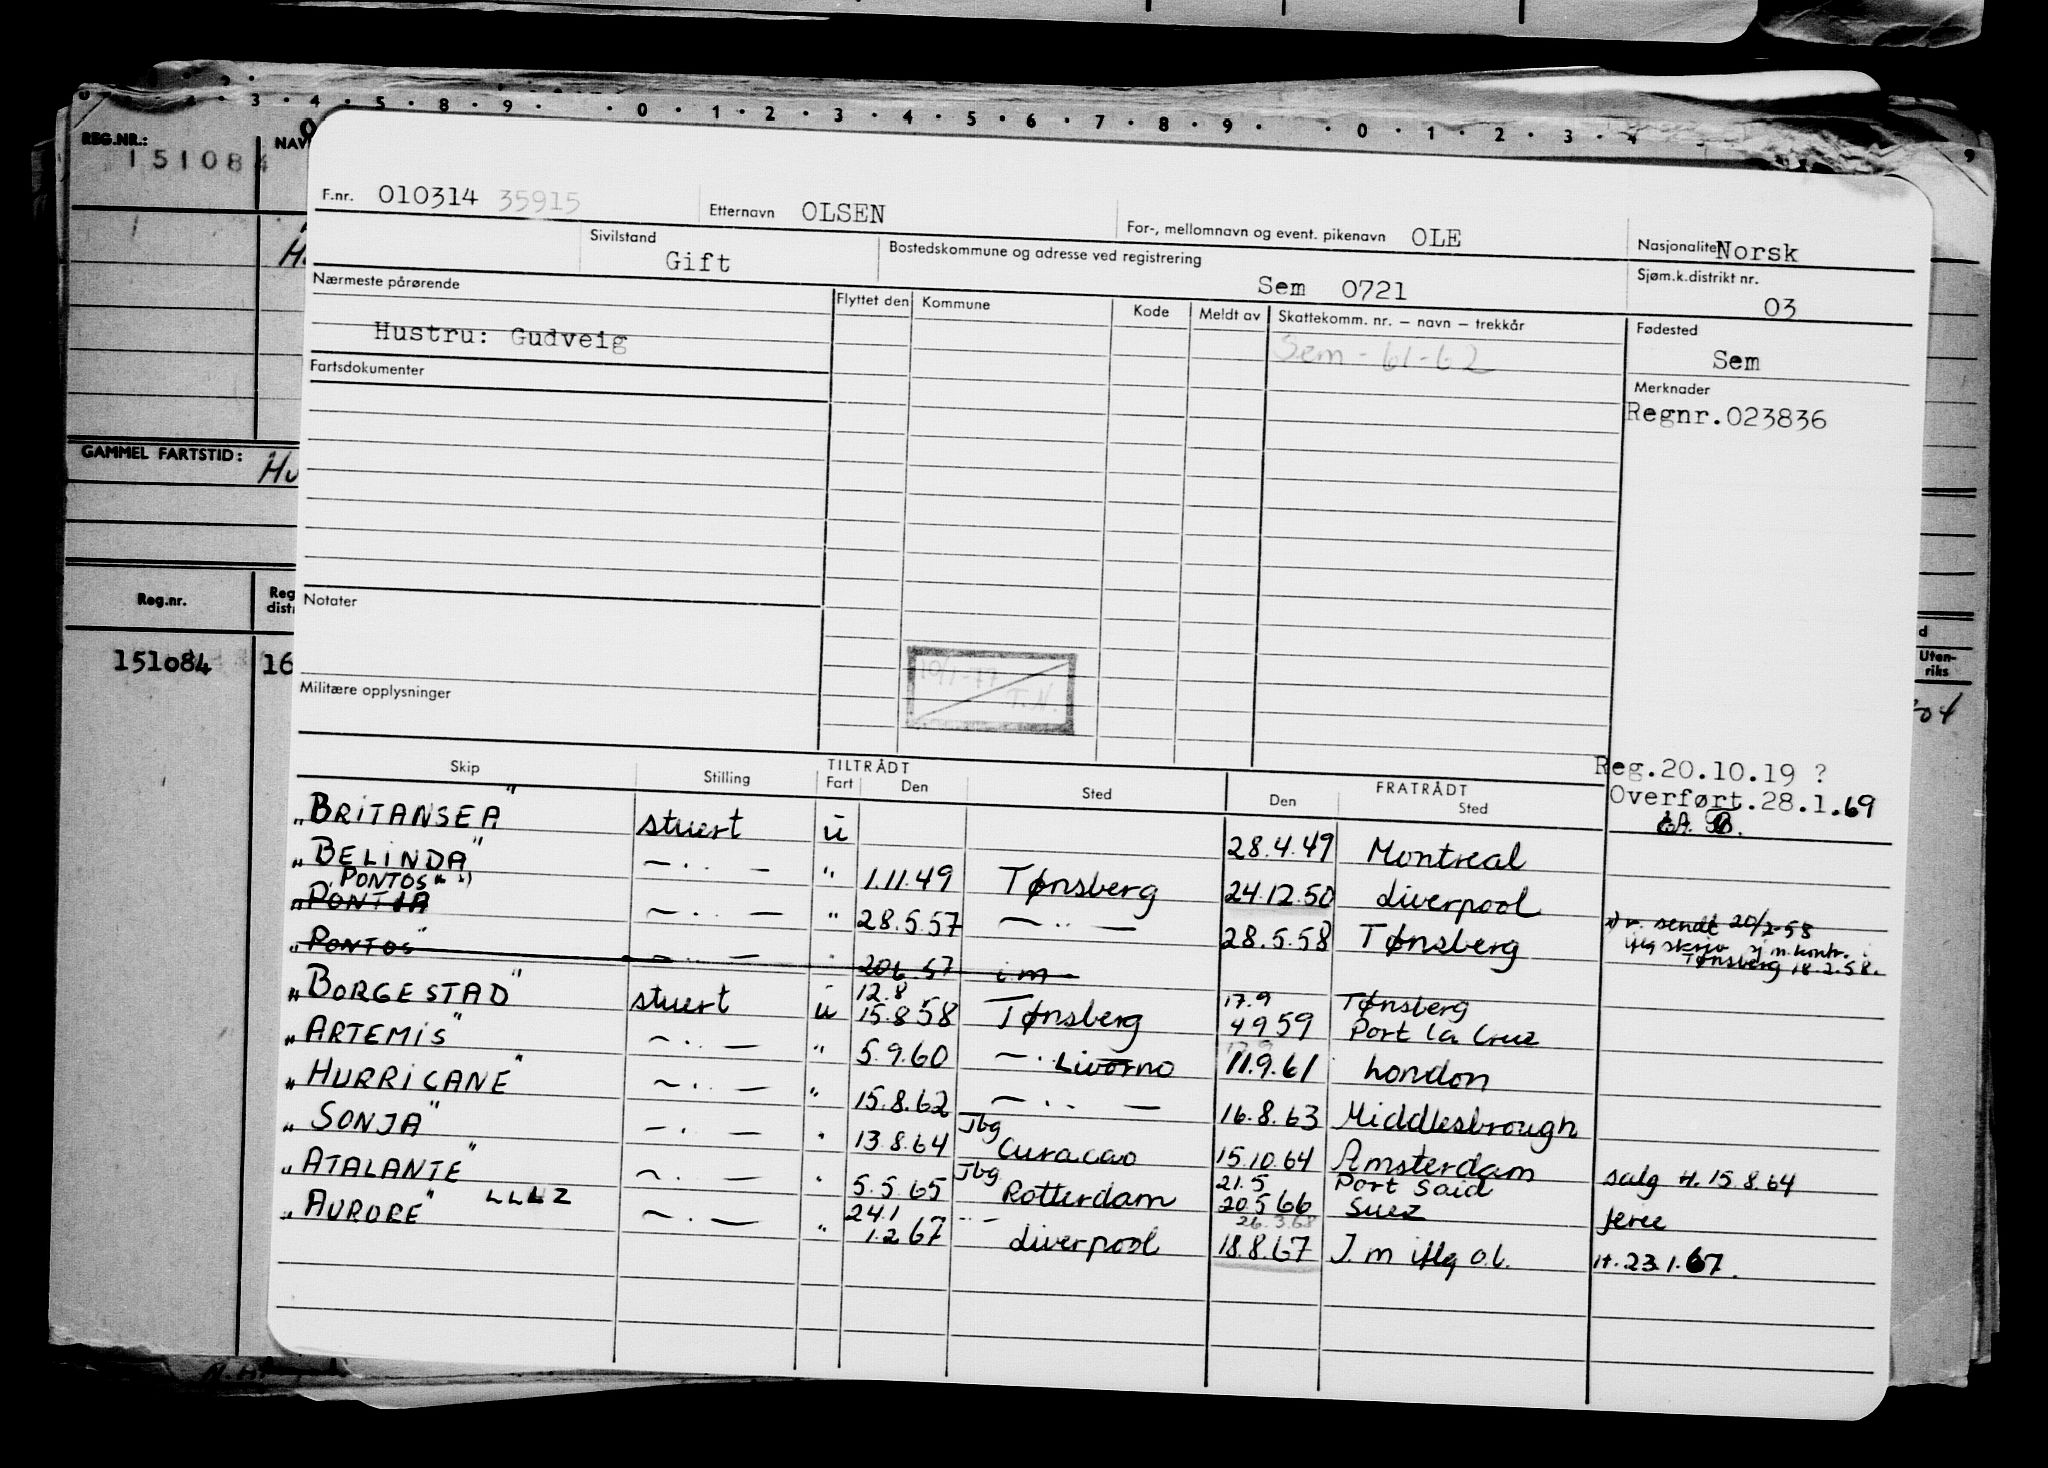 REG.NR.: NAV
151084
GAMMEL FARTSTID: Hu
Reg.nr. Reg distr
151084 16
d
Uten-
riks
F.nr. 010314 35915 Etternavn OLSEN For-, mellomnavn og event. pikenavn OLE Nasjonalitet Norsk
Sivilstand Gift Bostedskommune og adresse ved registrering Sem 0721 Sjøm.k.distrikt nr. 03
Nærmeste pårørende Flyttet den Kommune Kode Meldt av Skattekomm. nr. – navn – trekkår Fødested
Hustru: Gudveig Sem - 61-62 Sem
Fartsdokumenter Merknader
Regnr.023836
Notater
10/1-77 T.N.
Militære opplysninger
Reg.20.10.19 ?
Overført.28.1.69
Skip Stilling TILTRÅDT Fart Den Sted FRATRÅDT Den Sted
"BRITANSEA" stuert u 28.4.49 Montreal
"BELINDA" — . . — " 1.11.49 Tønsberg 24.12.50 Liverpool
PONTOS" x)
"PONTIA — . . — " 28.5.57 — . . — 28.5.58 Tønsberg x) v. sendt 20/2-58
iflg skriv sj.m.kontr. i
Tønsberg 18.2.58.
"PONTOS" — . . — " 20.6.57 i m
12.8 17.9 Tønsberg
"BORGESTAD" stuert u 15.8.58 Tønsberg 4.9.59 Port la Cruz
17.9
"ARTEMIS" — . . — " 5.9.60 — . . Livorno 11.9.61 London
"HURRICANE" — . . — " 15.8.62 — . . — 16.8.63 Middlesbrough
"SONJA" — . . — " 13.8.64 Tbg Curacao 15.10.64 Amsterdam salg H. 15.8.64
21.5 Port Said
"ATALANTE" — . . — " 5.5.65 Tbg Rotterdam 20.5.66 Suez ferie
LLLZ 24.1 26.3.68
"AURORE" — . . — " 1.2.67 Liverpool 18.8.67 I.m iflg o.l. H. 23.1.67.